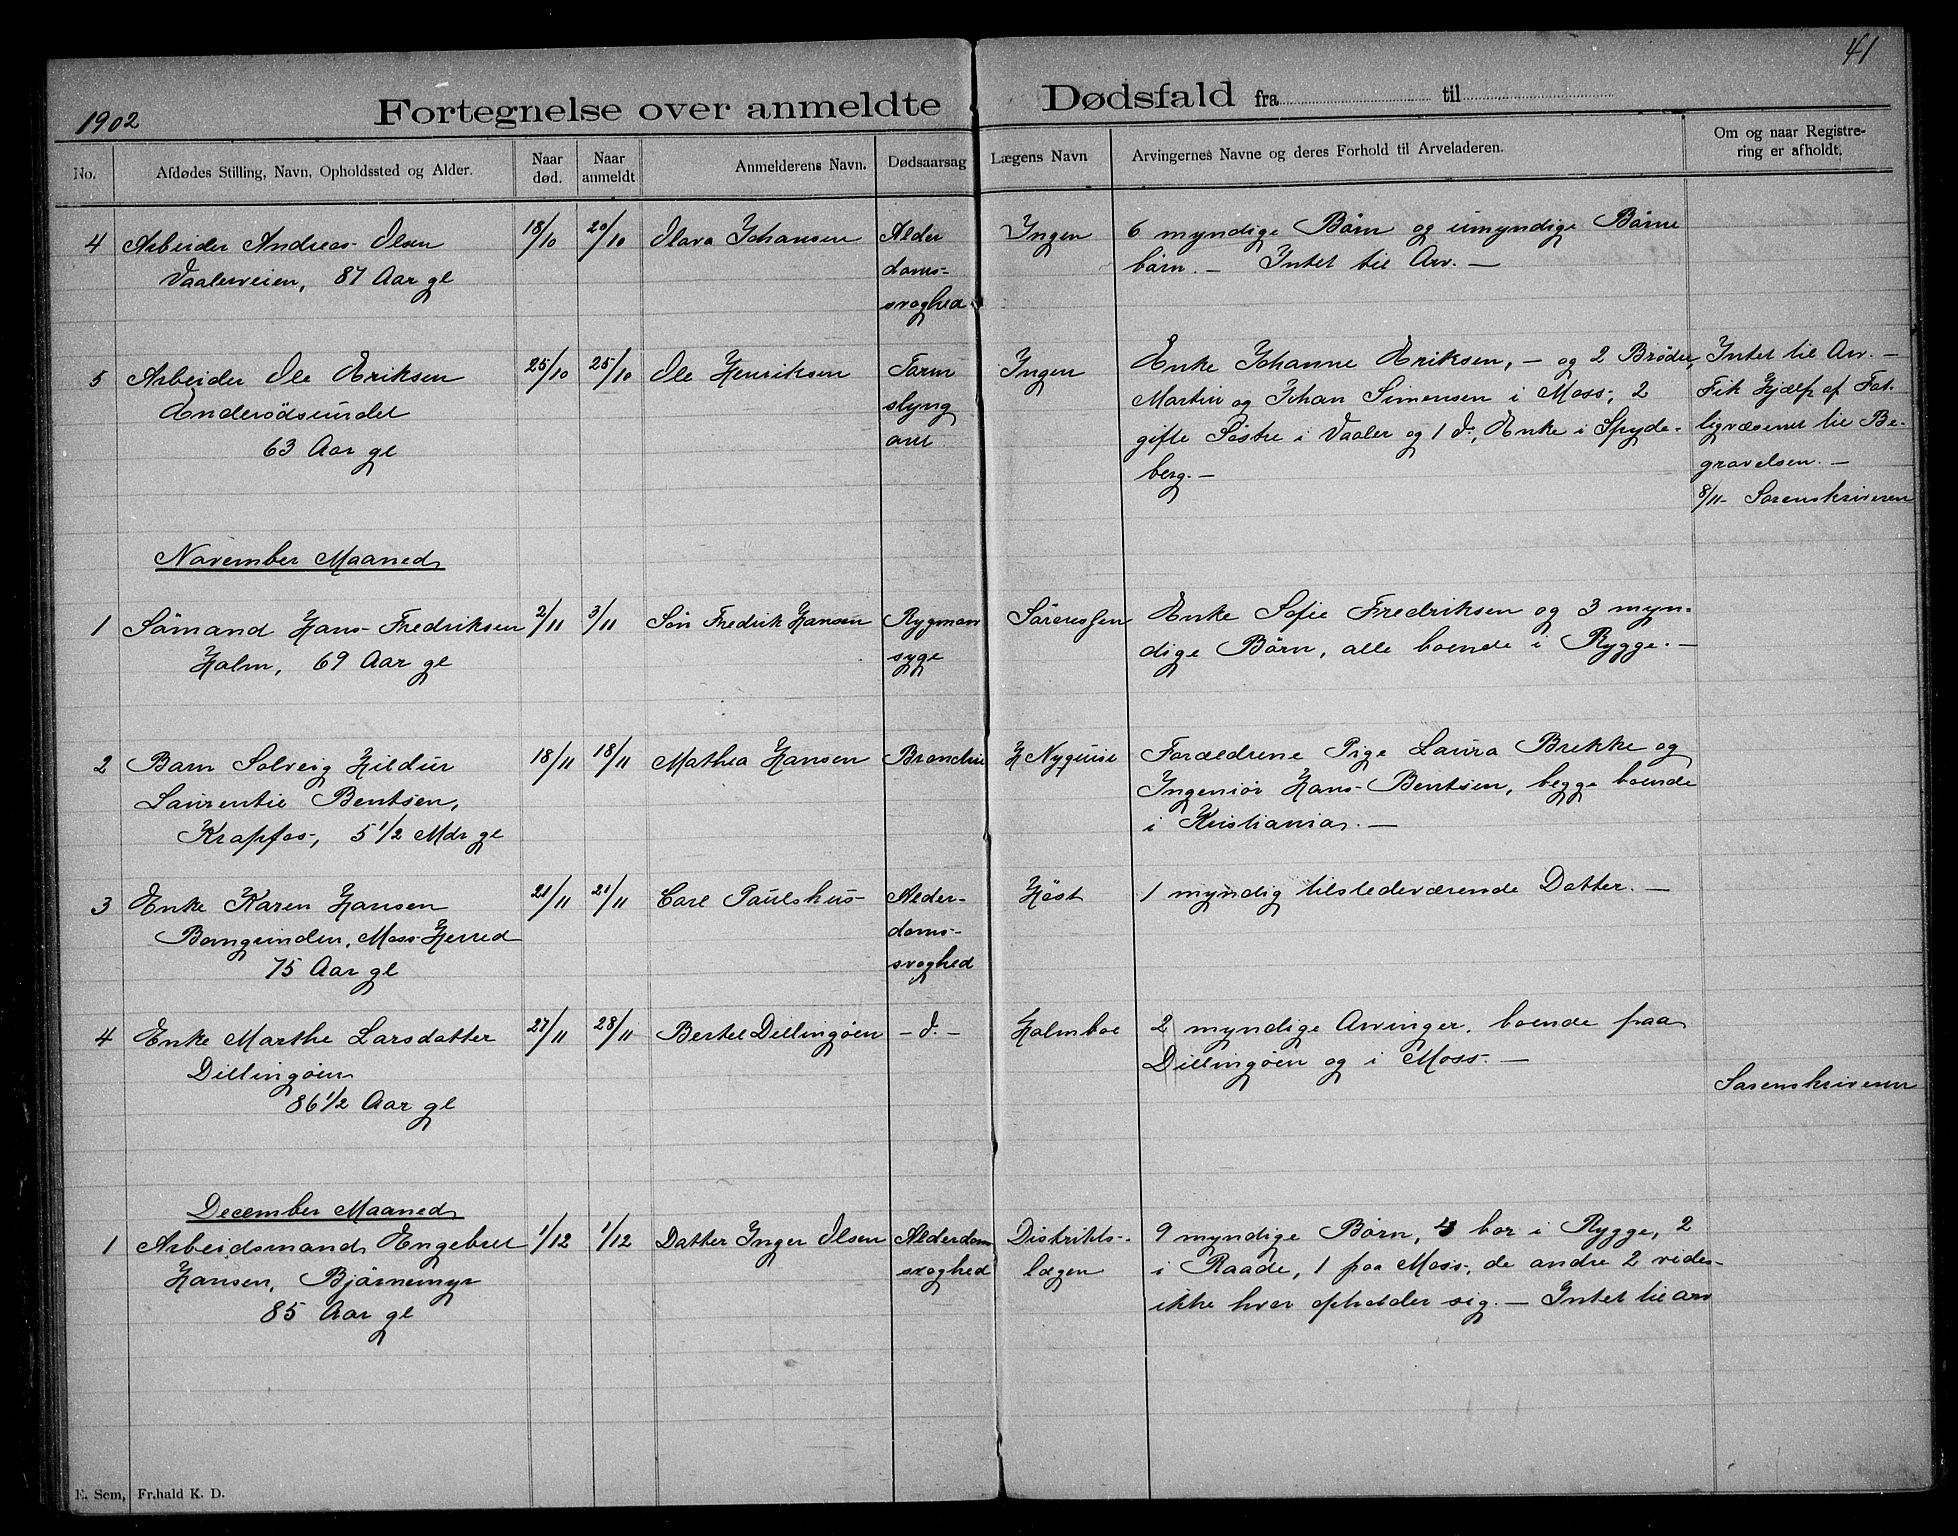 41
1902
Fortegnelse over anmeldte Dødsfald fra til
No.
Afdødes Stilling, Navn, Opholdssted og Alder.
Naar død.
Naar anmeldt
Anmelderens Navn.
Dødsaarsag
Lægens Navn
Arvingernes Navne og deres Forhold til Arveladeren.
Om og naar Registre-
ring er afholdt.
4 Arbeider Andreas Olsen
Vaalerveien, 87 Aar gl
18/10
20/10
Olava Johansen
Alder
doms-
svaghed
Ingen
6 myndige Børn og umyndige Børne
børn. — Intet til Arv. —
5 Arbeider Ole Eriksen
Enderødsundet
63 Aar gl
25/10
25/10
Ole Henriksen
Tarm
slyng
Ingen
Enke Johanne Eriksen, — og 2 Brødre,
Martin og Johan Simensen i Moss, 2
gifte Søstre i Vaaler og 1 do, Enke i Spyde-
berg. —
Intet til Arv. —
Fik Hjælp af Fat-
ligvæsenet til Be-
gravelsen. —
8/11 Sorenskriveren
November Maaned
1 Sømand Hans Fredriksen
Holm, 69 Aar gl
2/11
3/11
Søn Fredrik Hansen
Rygmarv
syge
Sørenssen
Enke Sofie Fredriksen og 3 myn-
dige Børn, alle boende i Rygge. —
2 Barn Solveig Hildur
Laurentie Bentsen,
Krapfos, 5 1/2 Mdr gl
18/11
18/11
Mathea Hansen
H
Forældrene Pige Laura Brekke og
Ingeniør Hans Bentsen, begge boende
i Kristiania. —
3 Enke Karen Hansen
Bomgrinden, Moss Herred
75 Aar gl
21/11
21/11
Carl Paulshus
Alder-
doms-
svaghed
Høst
1 myndig tilstedeværende Datter. —
4 Enke Marthe Larsdatter
Dillingøen
86 1/2 Aar gl
27/11
28/11
Bertel Dillingøen
— do —
Holmboe
2 myndige Arvinger, boende paa
Dillingøen og i Moss. —
Sorenskriveren
December Maaned
1 Arbeidsmand Engebret
Hansen, Bjørnemyr
85 Aar gl
1/12
1/12
Datter Inger Olsen
Alderdom
svaghed
Distrikts-
lægen
9 myndige Børn, 4 bor i Rygge, 2
i Raade, 1 paa Moss, de andre 2 vides
ikke hvor opholder sig. — Intet til arv
E. Sem, Fr.hald K. D.